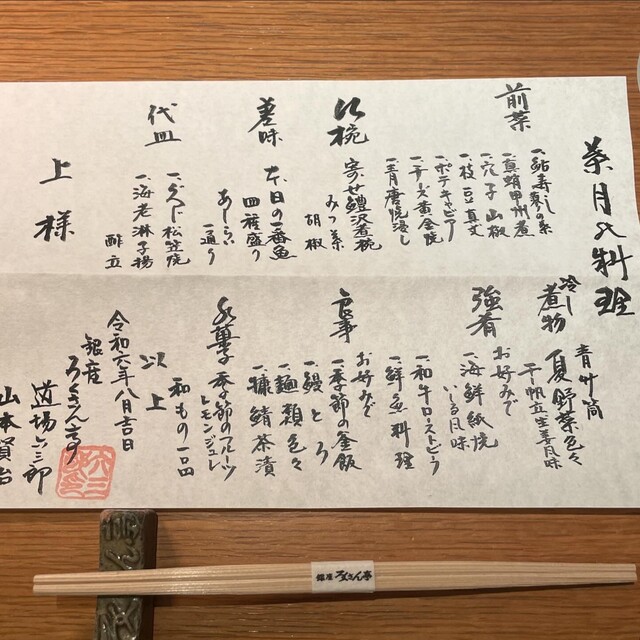 葉月の料理
前菜
一、鮎寿し 蓼の葉
一、真蛸甲州煮
一、穴子山椒
一、枝豆真丈
一、ポテキャビア
一、チーズ黄金焼
一、青唐焼浸し
椀
寄せ鱧沢煮椀
みつ葉
胡椒
差味
本日の一番魚
四種盛り
あしらい
一通り
代皿
一、グベド松笠焼
一、海老淋子揚
酢立
上様
冷し
煮物
青竹筒
夏野菜色々
干帆立生姜風味
強肴
お好みで
一、海鮮紙焼
いしる風味
一、和牛ローストビーフ
一、鮮魚料理
食事
お好みで
一、季節の釜飯
一、鰻とろ
一、麺類色々
一、糠鯖茶漬
水菓子
季節のフルーツ
レモンジュレ
和もの一品
以上
令和六年八月吉日
銀座
ろくさん亭
道場六三郎
山本賢治
銀座 ろくさん亭